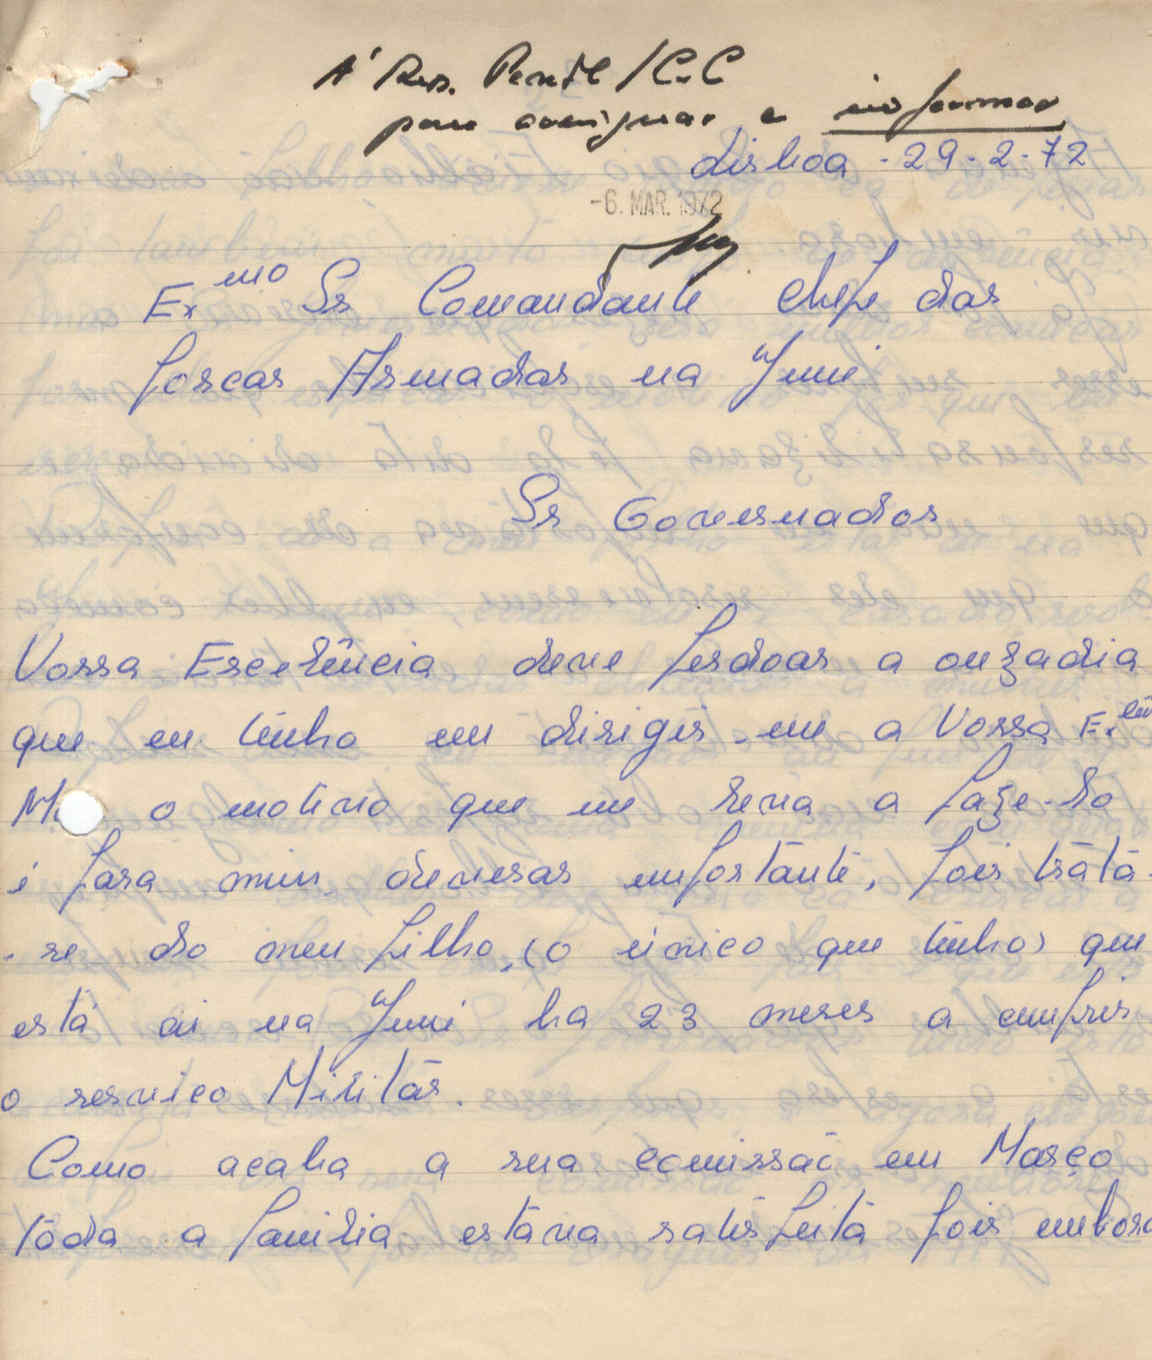 À Rep. /C.C
para averiguar e informar
Lisboa - 29-2-72
-6. MAR. 1972
Exmo Sr Comandante Chefe das
forcas Armadas na Guiné
Sr Governador
Vossa Escelência deve perdoar a ouzadia
que eu tinho em dirigir-me a Vossa Ex. lên
M o motivo que me leva a faze-lo
é para mim deveras importante, pois trata-
-se do meu filho, (o único que tinho) que
está ai na Guiné ha 23 meses a cumprir
o serviço Militar.
Como acaba a sua comissão em Março
toda a familia estava satisfeita pois embora